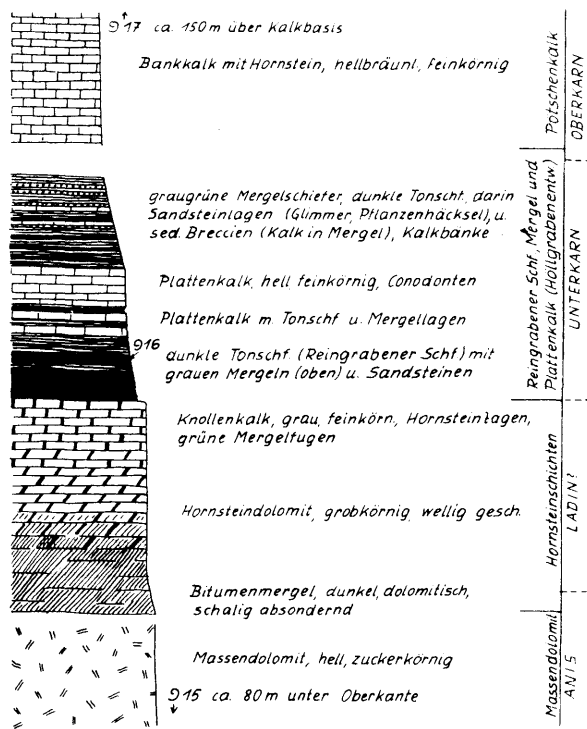 17 ca. 150m über Kalkbasis
Bankkalk mit Hornstein, hellbräunl., feinkörnig
graugrüne Mergelschiefer, dunkle Tonschf., darin
Sandsteinlagen (Glimmer, Pflanzenhäcksel), u.
sed. Breccien (Kalk in Mergel), Kalkbänke
Plattenkalk, hell feinkörnig, Conodonten
Plattenkalk m. Tonschf u. Mergellagen
16
dunkle Tonschf. (Reingrabener Schf) mit
grauen Mergeln (oben) u. Sandsteinen
Knollenkalk, grau, feinkörn., Hornsteinlagen,
grüne Mergelfugen
Hornsteindolomit, grobkörnig, wellig gesch.
Bitumenmergel, dunkel, dolomitisch,
schalig absondernd
Massendolomit, hell, zuckerkörnig
15 ca. 80m unter Oberkante
Potschenkalk
OBERKARN
Reingrabener Schf, Mergel und
Plattenkalk (Höllgrabenentw.)
UNTERKARN
Hornsteinschichten
LADIN?
Massendolomit
ANIS